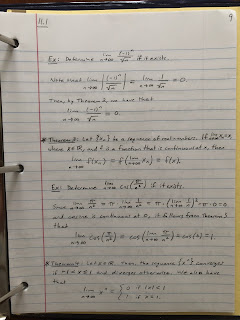 11.1
9
Ex: Determine lim n→∞ (-1)^n/√n if it exists.
Note that lim n→∞ |(-1)^n/√n| = lim n→∞ 1/√n = 0.
Then, by Theorem 2, we have that
lim n→∞ (-1)^n/√n = 0.
* Theorem 3: Let {x_n} be a sequence of real numbers. If lim n→∞ x_n = x,
where x ∈ ℝ, and f is a function that is continuous at x, then
lim n→∞ f(x_n) = f(lim n→∞ x_n) = f(x).
Ex: Determine lim n→∞ cos(π/n²) if it exists.
Since lim n→∞ π/n² = π · lim n→∞ 1/n² = π · (lim n→∞ 1/n)² = π · 0 = 0
and cosine is continuous at 0, it follows from Theorem 3
that
lim n→∞ cos(π/n²) = cos(lim n→∞ π/n²) = cos(0) = 1.
* Theorem 4: Let r ∈ ℝ. Then, the sequence {r^n} converges
if -1 < r ≤ 1 and diverges otherwise. We also have
that
lim n→∞ r^n = { 0 if |r| < 1
1 if r = 1